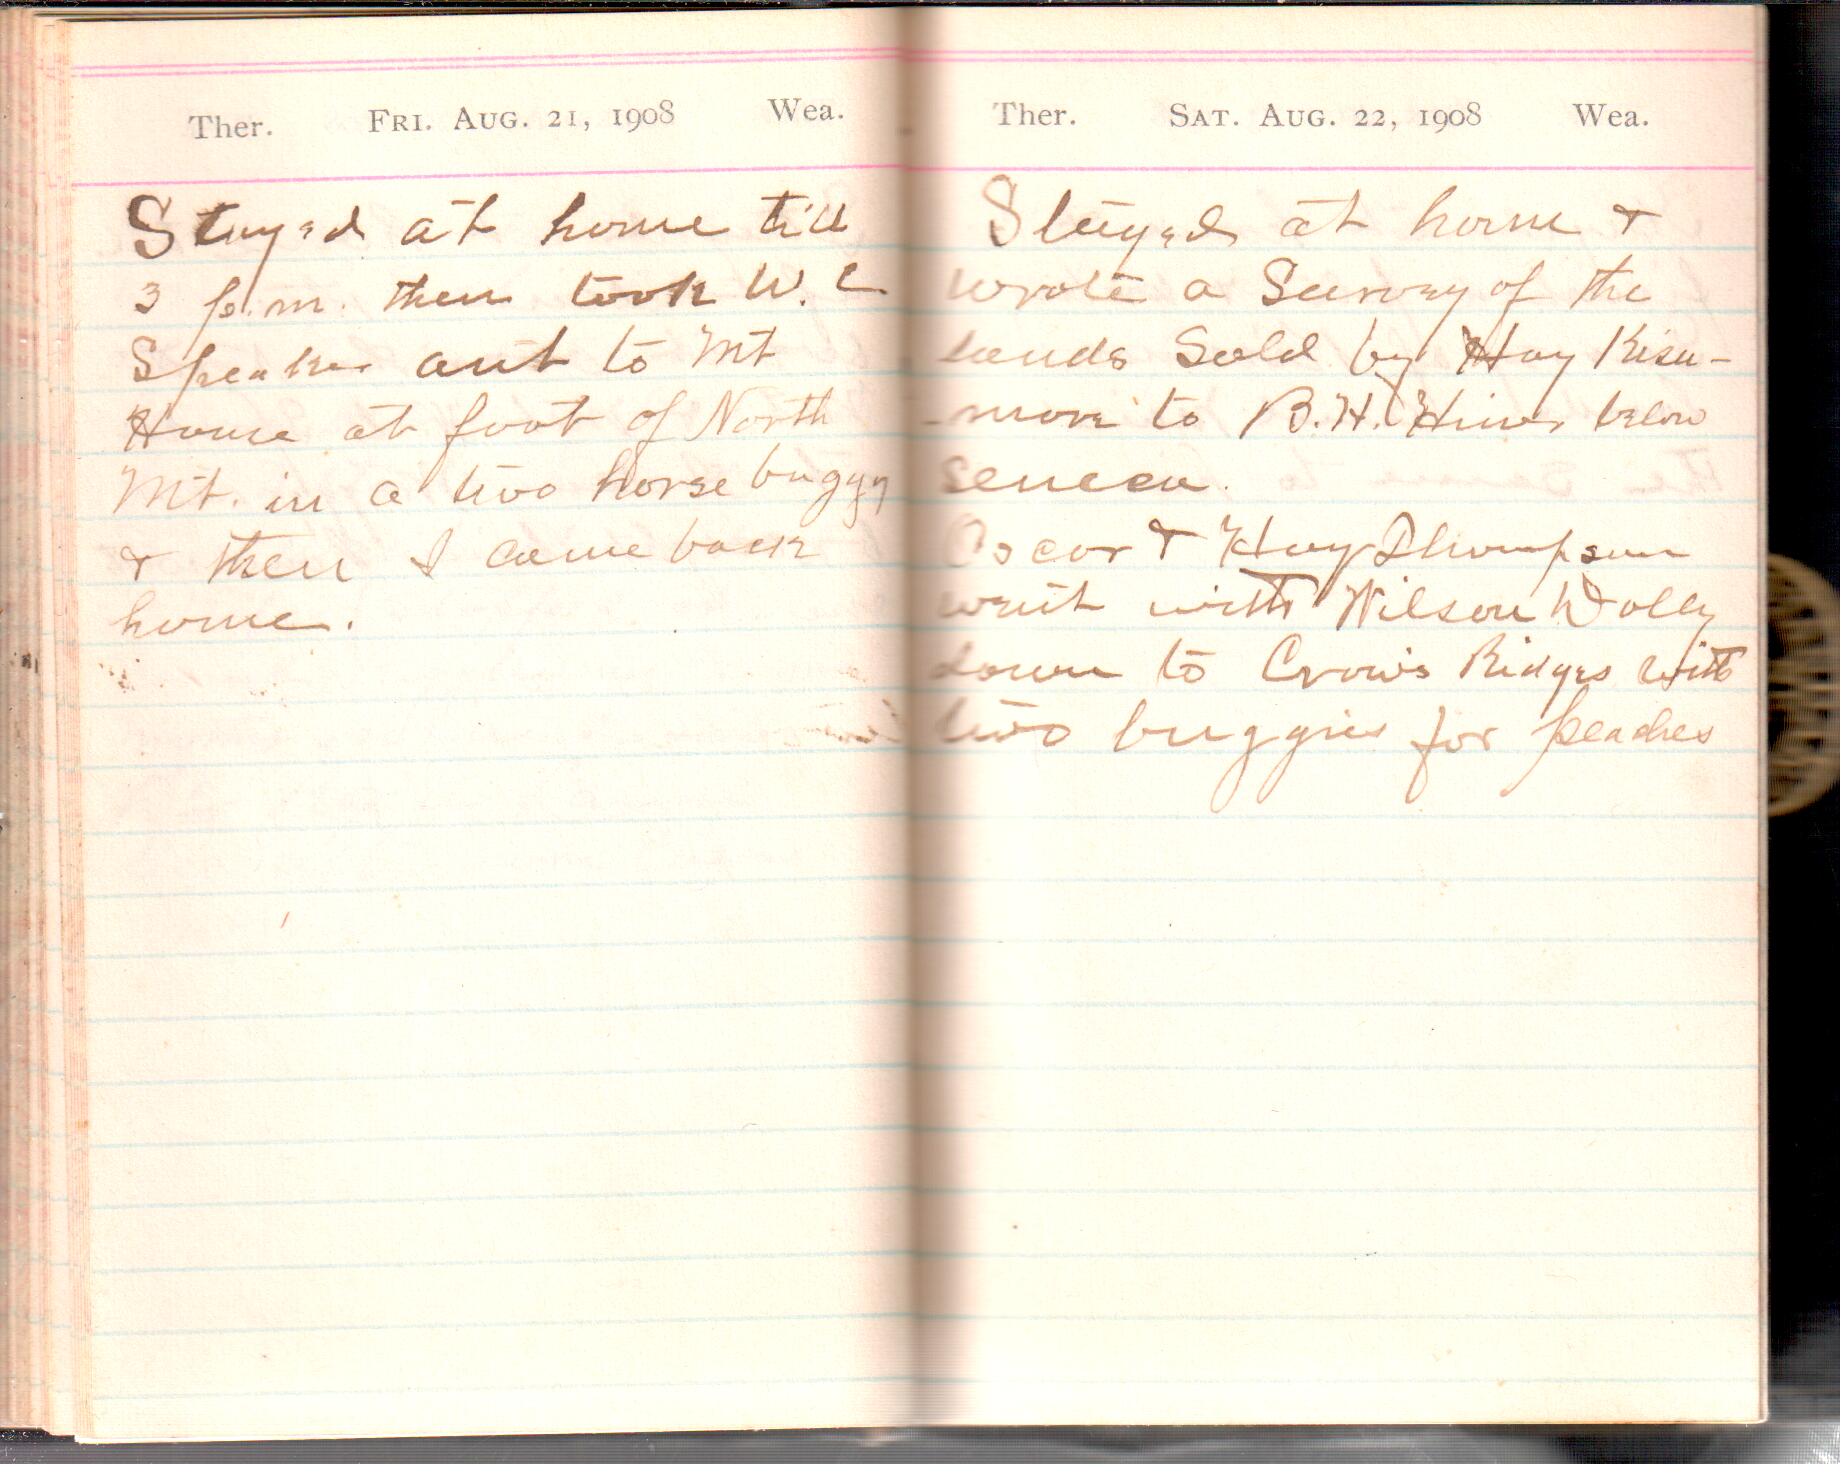 Ther. FRI. AUG. 21, 1908 Wea.
Stayed at home till
3 p.m. then took W. C.
Speaker out to Mt
House at foot of North
Mt. in a two horse buggy
& then I came back
home.
Ther. SAT. AUG. 22, 1908 Wea.
Stayed at home &
wrote a Survey of the
lands Sold by Hoy Kisa-
-more to B. H. Hiner below
seneca.
Oscar & Hoy Thompson
went with Wilson Dolly
down to Crow's Ridges with
two buggies for peaches